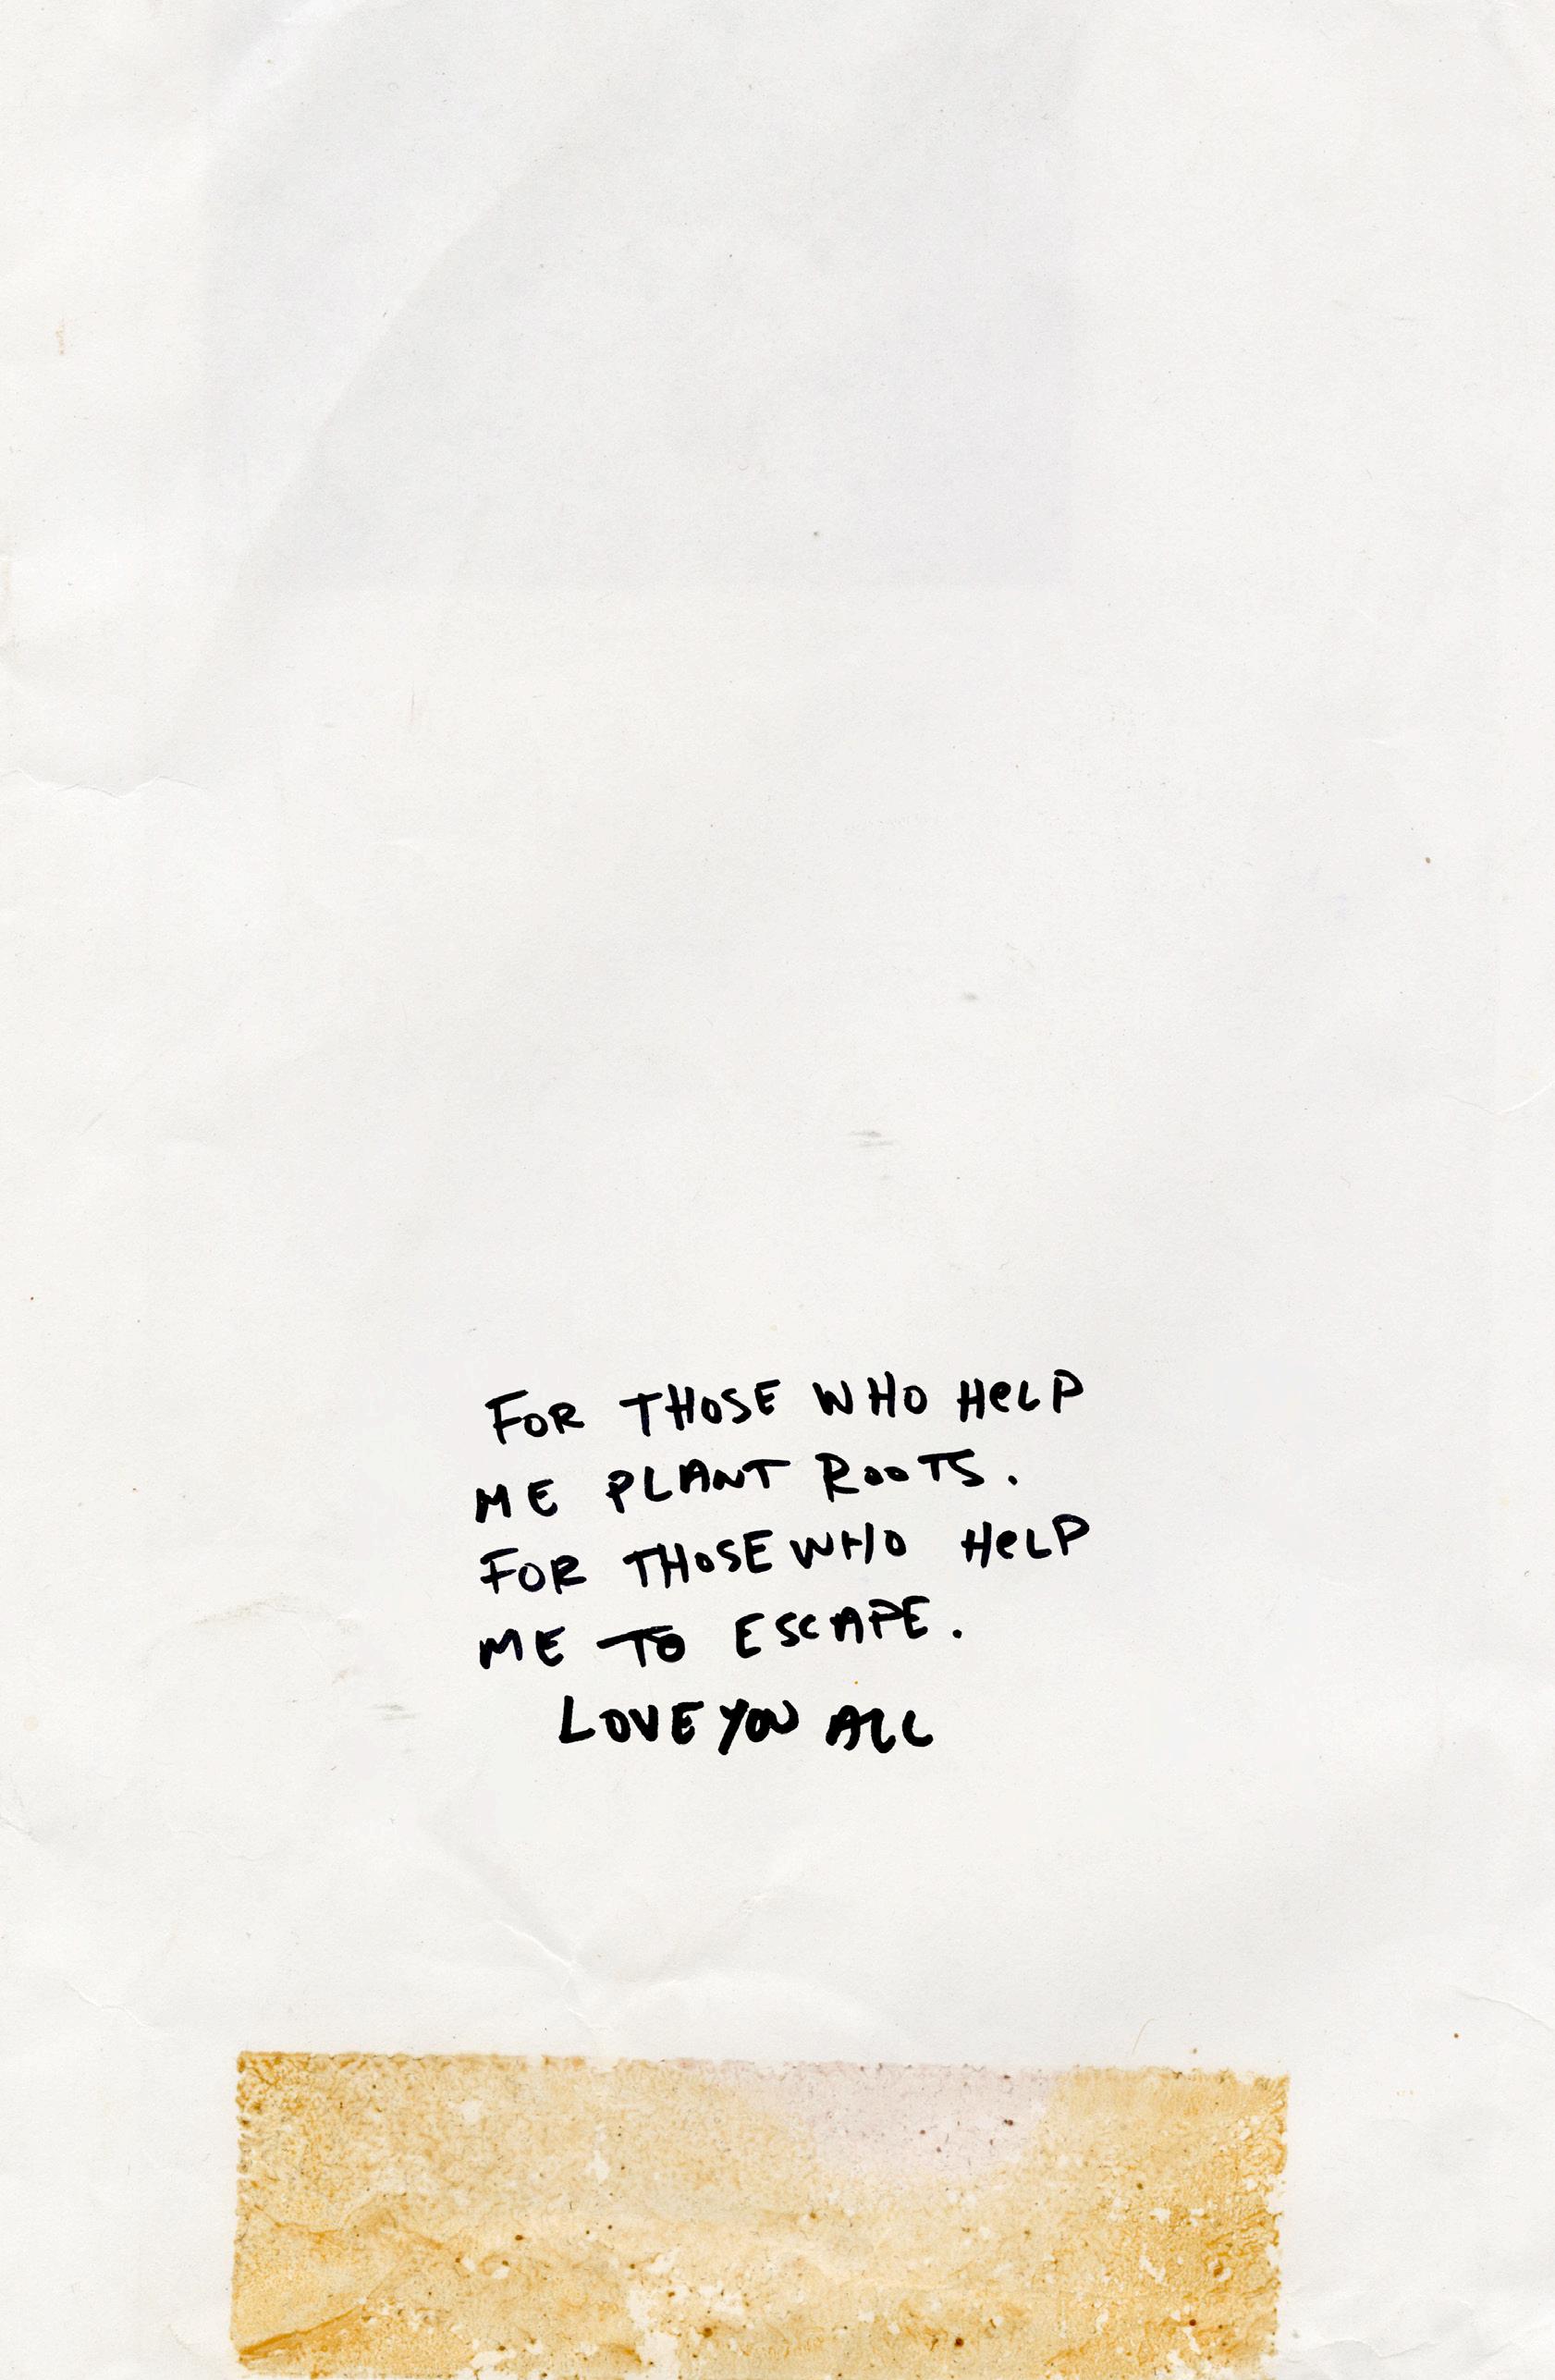 FOR THOSE WHO HeLP
ME PLANT ROOTS.
FOR THOSE WHO HeLP
ME TO ESCAPE.
LOVE YOU ALL